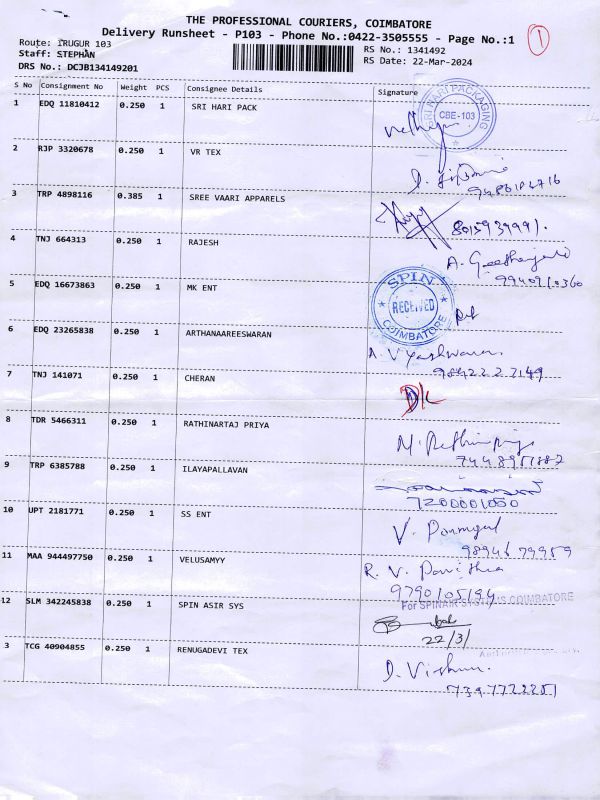 THE PROFESSIONAL COURIERS, COIMBATORE
Delivery Runsheet - P103 - Phone No.:0422-3505555 - Page No.:1
1
Route: IRUGUR 103
RS No.: 1341492
Staff: STEPHAN
RS Date: 22-Mar-2024
DRS No.: DCJB134149201
S No Consignment No Weight PCS Consignee Details Signature
1 EDQ 11810412 0.250 1 SRI HARI PACK
SRI HARI PACKAGING
CBE-103
2 RJP 3320678 0.250 1 VR TEX
3 TRP 4898116 0.385 1 SREE VAARI APPARELS
4 TNJ 664313 0.250 1 RAJESH
5 EDQ 16673863 0.250 1 MK ENT
SPIN
RECEIVED
COIMBATORE
6 EDQ 23265838 0.250 1 ARTHANAAREESWARAN
9842227149
7 TNJ 141071 0.250 1 CHERAN
8 TDR 5466311 0.250 1 RATHINARTAJ PRIYA
9 TRP 6385788 0.250 1 ILAYAPALLAVAN
7200001050
10 UPT 2181771 0.250 1 SS ENT
9894679959
11 MAA 944497750 0.250 1 VELUSAMYY
R. V. Pavithra
9790105194
12 SLM 342245838 0.250 1 SPIN ASIR SYS
For SPINAIR SYSTEMS COIMBATORE
22/3/
3 TCG 40904855 0.250 1 RENUGADEVI TEX
D. Vishnu.